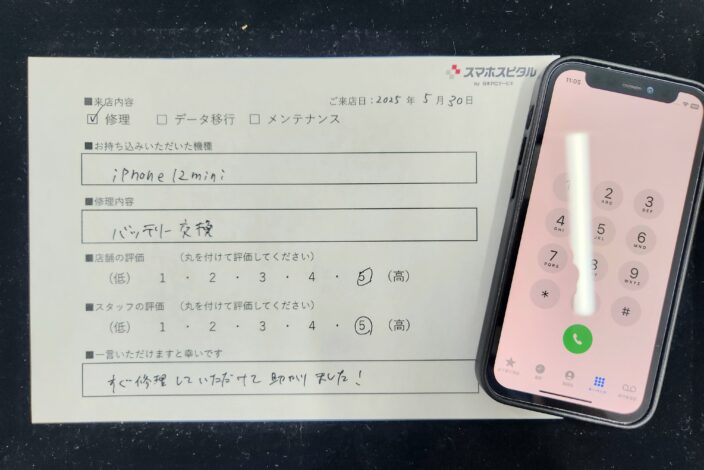 スマホスピタル
■来店内容
ご来店日：2025年5月30日
☑ 修理 □ データ移行 □ メンテナンス
■お持ち込みいただいた機種
iPhone 12 mini
■修理内容
バッテリー交換
■店舗の評価 （丸を付けて評価してください）
（低） 1 ・ 2 ・ 3 ・ 4 ・ 5 （高）
■スタッフの評価 （丸を付けて評価してください）
（低） 1 ・ 2 ・ 3 ・ 4 ・ 5 （高）
■一言いただけますと幸いです
すぐ修理していただけて助かりました！
11:05
2 3
ABC DEF
4 5 6
GHI JKL MNO
7 8 9
PQRS WXYZ
* #